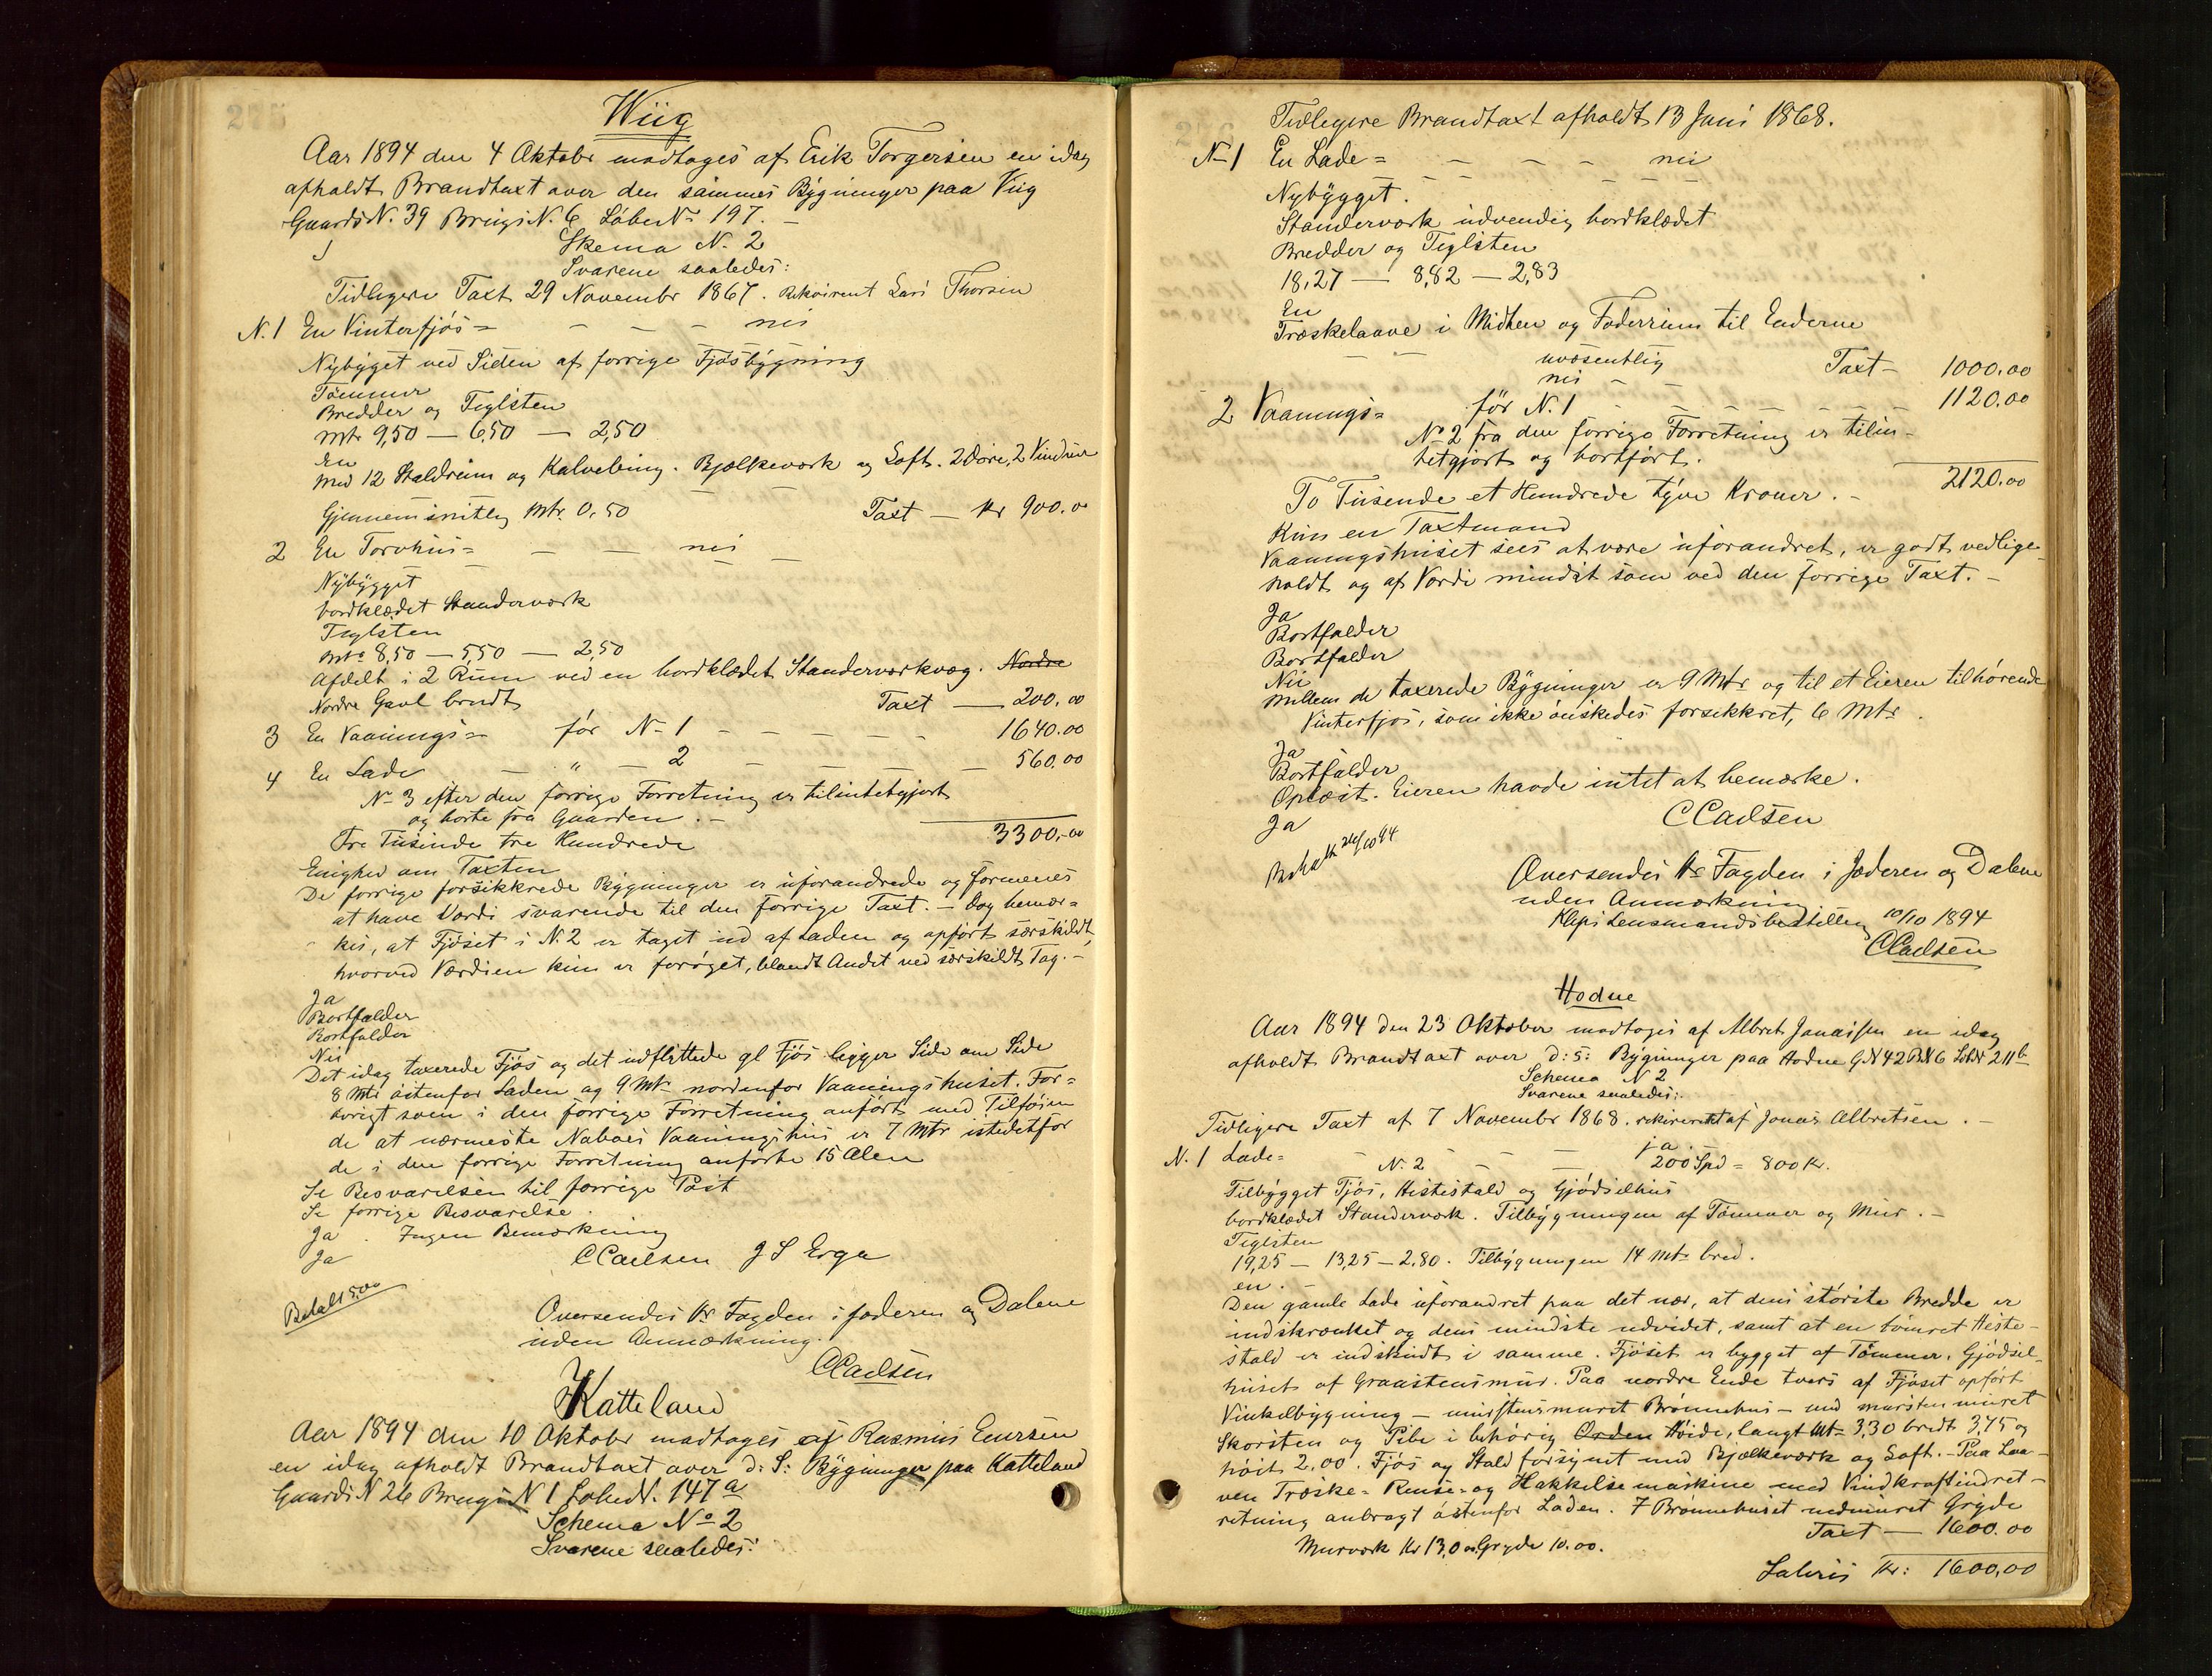 Wiig
Aar 1894 den 4 Oktobr modtoges af Erik Torgersen en idag
afholdt Brandtaxt over den sammes Bygninger paa Viig
Gaards N. 39 Brugs N. 6 Løbe Nr 197. –
Skema N. 2
Svarene saaledes:
Tidligere Taxt 29 Novembr 1867. Rekvirent Lars Thorsen
N. 1 En Vinterfjøs = – – – nei
Nybyget ved Siden af forrige Fjøsbygning
Tømmer
Bredder og Teglsten
mtr 9,50 – 6,50 – 2,50
En
med 12 Staldrum og Kalvebing. Bjælkeværk og Loft. 2 Døre, 2 Vinduer
Gjennemsnitlig Mtr. 0,50 Taxt – Kr 900.00
2 En Torvhus = – – nei –
Nybygget
bordklædet Standerværk
Teglsten
mtr 8,50 – 5,50 – 2,50
Afdelt i 2 Rum ved en bordklædet Standerværkvæg. Nordre
Nordre Gavl brudt Taxt – 200.00
3 En Vaanings = før N – 1 – – – – – 1640.00
4 En Lade – " – 2 – – – – 560.00
No 3 efter den forrige Forretning er tilintetgjort
og borte fra Gaarden. –
Tre Tusinde tre Hundrede 3300,00
Enighed om Taxten
De forrige forsikkrede Bygninger er uforandrede og formenes
at have Værdi svarende til den forrige Taxt. – Dog bemær=
kes, at Fjøset i N. 2 er taget ud af Laden og opført særskildt,
hvorved Værdien kun er forøget, blandt Andet ved særskildt Tag. –
Ja
Bortfalder
Bortfalder
Nei
Det idag taxerede Fjøs og det udflyttede gl Fjøs ligger Side om Side
8 Mtr østenfor Laden og 9 Mtr nordenfor Vaaningshuset. For=
øvrigt som i den forrige Forretning anført med Tilføien
de at nærmeste Naboes Vaaningshus er 7 Mtr istedetfor
de i den forrige Forretning anførte 15 Alen
Se Besvarelsen til forrige Post
Se forrige Besvarelse.
Ja . Ingen Bemærkning
Ja
CCarlsen J S Erga
Betalt 5.00
Oversendes Hr Fogden i Jæderen og Dalene
uden Anmærkning.
CCarlsen
Katteland
Aar 1894 den 10 Oktobr modtoges af Rasmus Enersen
en idag afholdt Brandtaxt over d: S: Bygninger paa Katteland
Gaards N 26 Brugs N 1 Løbe N. 147 a
Schema No 2
Svarene saaledes:
Tidligere Brandtaxt afholdt 13 Juni 1868.
No 1 En Lade = – – – – nei
Nybygget. – – –
Standerværk udvendig bordklædet
Bredder og Teglsten
18,27 – 8,82 – 2,83
En
Træskelaave i Midten og Foderrum til Enderne
– – uvæsentlig Taxt – 1000.00
nei – –
2 Vaanings = før N. 1 – – – – – 1120.00
No 2 fra den forrige Forretning er tilin-
tetgjort og bortført.
To Tusende et Hundrede tyve Kroner. – 2120.00
Kun en Taxtmand
Vaaningshuset sees at være uforandret, er godt vedlige-
holdt og af Værdi mindst som ved den forrige Taxt. –
Ja
Bortfalder
Bortfalder
Nei
Mellem de taxerede Bygninger er 9 Mtr og til et Eieren tilhørende
Vinterfjøs, som ikke ønskedes forsikkret, 6 Mtr.
Ja
Bortfalder
Oplæst. Eieren havde intet at bemærke.
Ja
CCarlsen
24/10 94
Oversendes Hr Fogden i Jæderen og Dalene
uden Anmærkning
Klep Lensmandsbestilling 10/10 1894
CCarlsen
Hodne
Aar 1894 den 23 Oktober modtoges af Albret Jonassen en idag
afholdt Brandtaxt over d: S: Bygninger paa Hodne G N 42 B N 6 Løbe N 211 b
Schema N 2
Svarene saaledes:
Tidligere Taxt af 7 Novembr 1868. rekvireret af Jonas Albretsen. –
ja. –
N. 1 Lade = – N. 2 – – – 200 Spd = 800 Kr.
Tilbygget Fjøs, Hestestald og Gjødselhus
bordklædet Standerværk. Tilbygningen af Tømmer og Mur. –
Teglsten
19,25 – 13,25 – 2.80. Tilbygningen 14 Mtr bred.
en. –
Den gamle Lade uforandret paa det nær, at dens største Bredde er
indskrænket og dens mindste udvidet, samt at en tømret Heste-
stald er indskudt i samme. Fjøset er bygget af Tømmer, Gjødsel-
huset af Graastensmur. Paa nordre Ende tvers af Fjøset opført
Vinkelbygning – murstensmuret Brønnehus – med mursten muret
Skorsten og Pibe i behørig Orden Høide, langt Mt – 3,30 bredt 3,75 og
høit 2.00. Fjøs og Stald forsynet med Bjælkeværk og Loft. – Paa Laa-
ven Træske = Rense = og Hakkelsemaskine med Vindkraftindret-
retning anbragt østenfor Laden. I Brønnehuset nedmuret Gryde
Taxt – 1600.00
Murværk Kr 130 og Gryde 10.00.
Lateris Kr: 1600,00